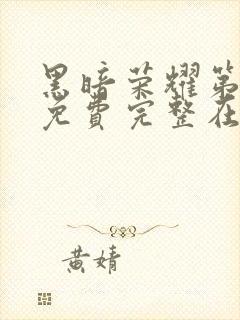 黑暗荣耀第
免费完整在
黄婧